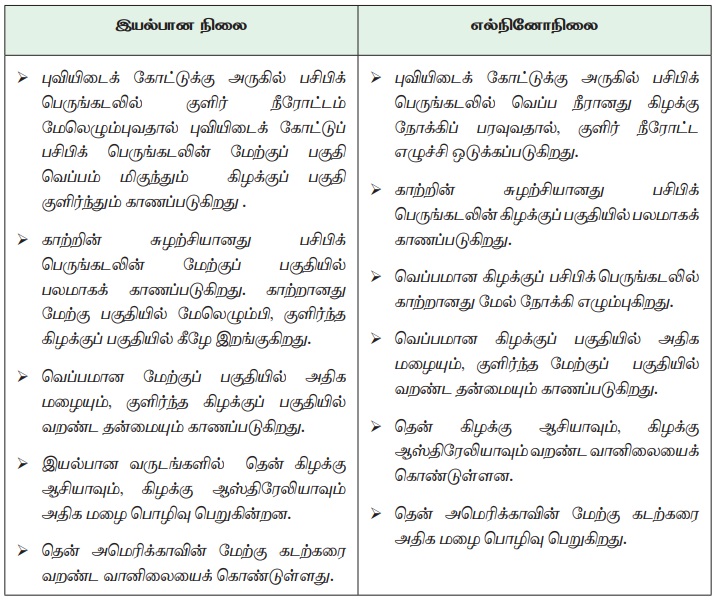 இயல்பான நிலை
➢ புவியிடைக் கோட்டுக்கு அருகில் பசிபிக்
பெருங்கடலில் குளிர் நீரோட்டம்
மேலெழும்புவதால் புவியிடைக் கோட்டுப்
பசிபிக் பெருங்கடலின் மேற்குப் பகுதி
வெப்பம் மிகுந்தும் கிழக்குப் பகுதி
குளிர்ந்தும் காணப்படுகிறது .
➢ காற்றின் சுழற்சியானது பசிபிக்
பெருங்கடலின் மேற்குப் பகுதியில்
பலமாகக் காணப்படுகிறது. காற்றானது
மேற்கு பகுதியில் மேலெழும்பி, குளிர்ந்த
கிழக்குப் பகுதியில் கீழே இறங்குகிறது.
➢ வெப்பமான மேற்குப் பகுதியில் அதிக
மழையும், குளிர்ந்த கிழக்குப் பகுதியில்
வறண்ட தன்மையும் காணப்படுகிறது.
➢ இயல்பான வருடங்களில் தென் கிழக்கு
ஆசியாவும், கிழக்கு ஆஸ்திரேலியாவும்
அதிக மழை பொழிவு பெறுகின்றன.
➢ தென் அமெரிக்காவின் மேற்கு கடற்கரை
வறண்ட வானிலையைக் கொண்டுள்ளது.
எல்நினோநிலை
➢ புவியிடைக் கோட்டுக்கு அருகில் பசிபிக்
பெருங்கடலில் வெப்ப நீரானது கிழக்கு
நோக்கிப் பரவுவதால், குளிர் நீரோட்ட
எழுச்சி ஒடுக்கப்படுகிறது.
➢ காற்றின் சுழற்சியானது பசிபிக்
பெருங்கடலின் கிழக்குப் பகுதியில் பலமாகக்
காணப்படுகிறது.
➢ வெப்பமான கிழக்குப் பசிபிக் பெருங்கடலில்
காற்றானது மேல் நோக்கி எழும்புகிறது.
➢ வெப்பமான கிழக்குப் பகுதியில் அதிக
மழையும், குளிர்ந்த மேற்குப் பகுதியில்
வறண்ட தன்மையும் காணப்படுகிறது.
➢ தென் கிழக்கு ஆசியாவும், கிழக்கு
ஆஸ்திரேலியாவும் வறண்ட வானிலையைக்
கொண்டுள்ளன.
➢ தென் அமெரிக்காவின் மேற்கு கடற்கரை
அதிக மழை பொழிவு பெறுகிறது.